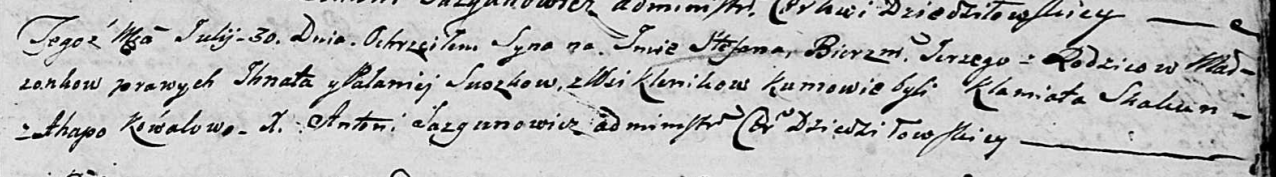 administr. Cerkwi Dziedziłowskiey
Tegoż Mca Julij 30. Dnia. Ochrzciłem Syna na Imie Stefana, Bierzm. Jerzego z Rodzicow Mał-
żonkow prawych Ihnata y Pałaniej Suszkow, z Wsi Klenikow Kumowie byli Klamiata Skakun
z Ahapo Kowalowo. X. Antoni Jazgunowicz administr Cer Dziedziłowskiey